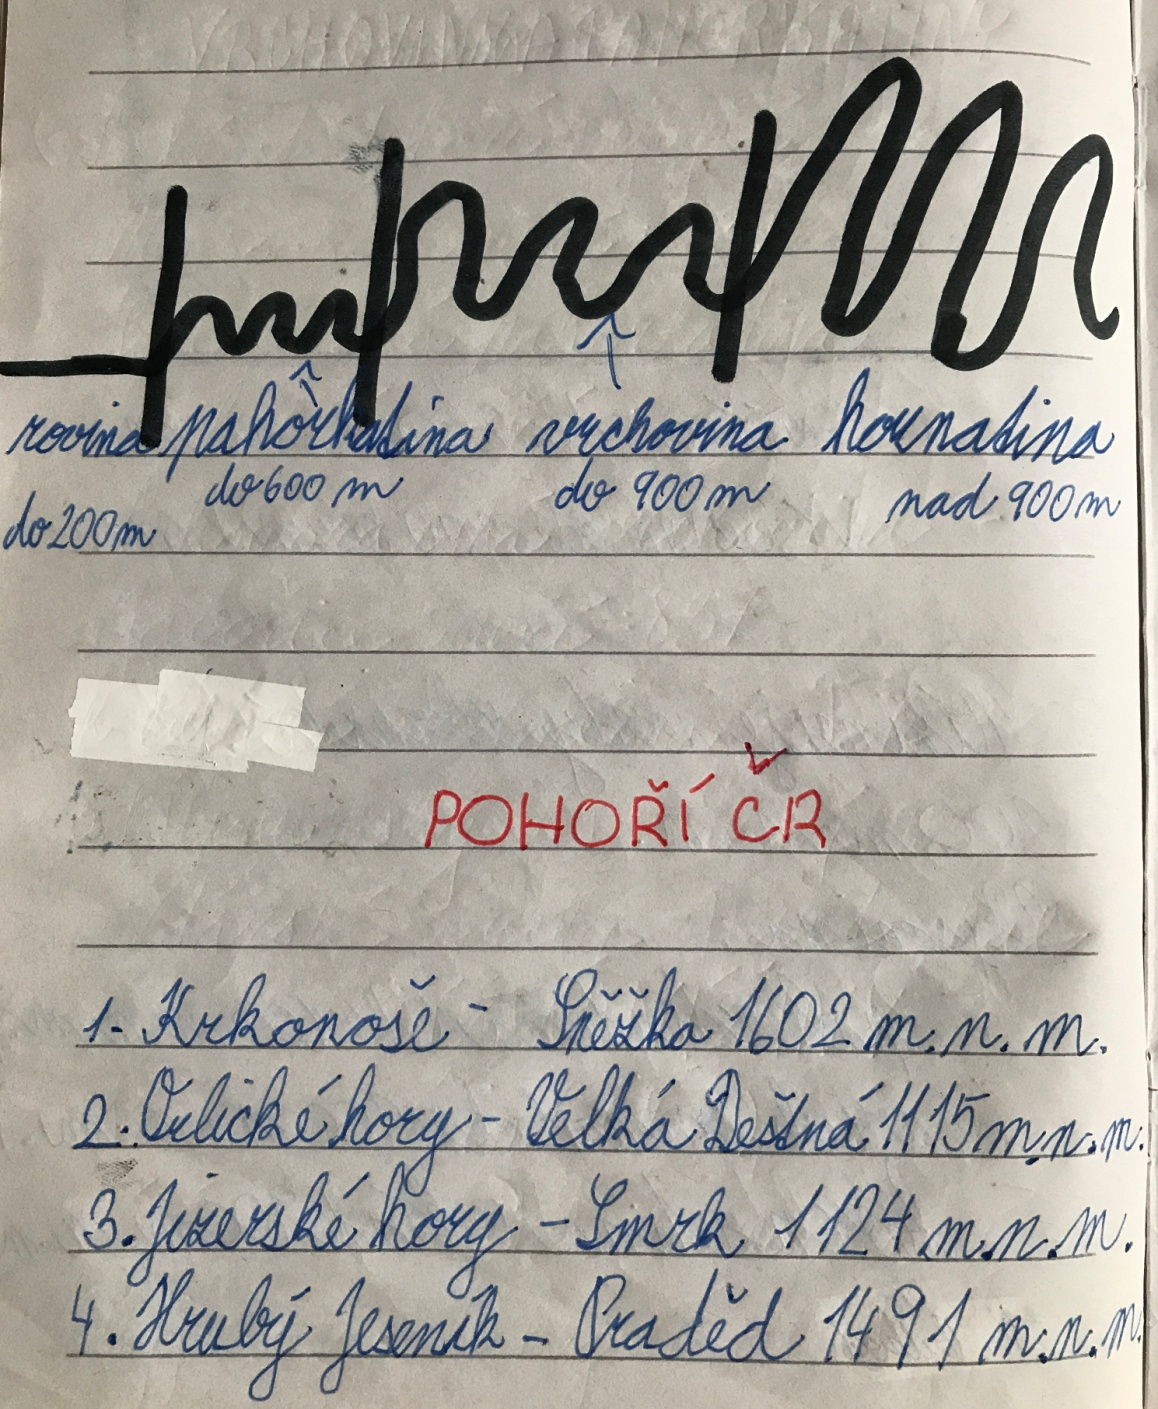 rovina pahorkatina vrchovina hornatina
do 600 m do 900 m nad 900 m
do 200 m
POHOŘÍ ČR
1. Krkonoše - Sněžka 1602 m.n.m.
2. Orlické hory - Velká Deštná 1115 m.n.m.
3. Jizerské hory - Smrk 1124 m.n.m.
4. Hrubý Jeseník - Praděd 1491 m.n.m.